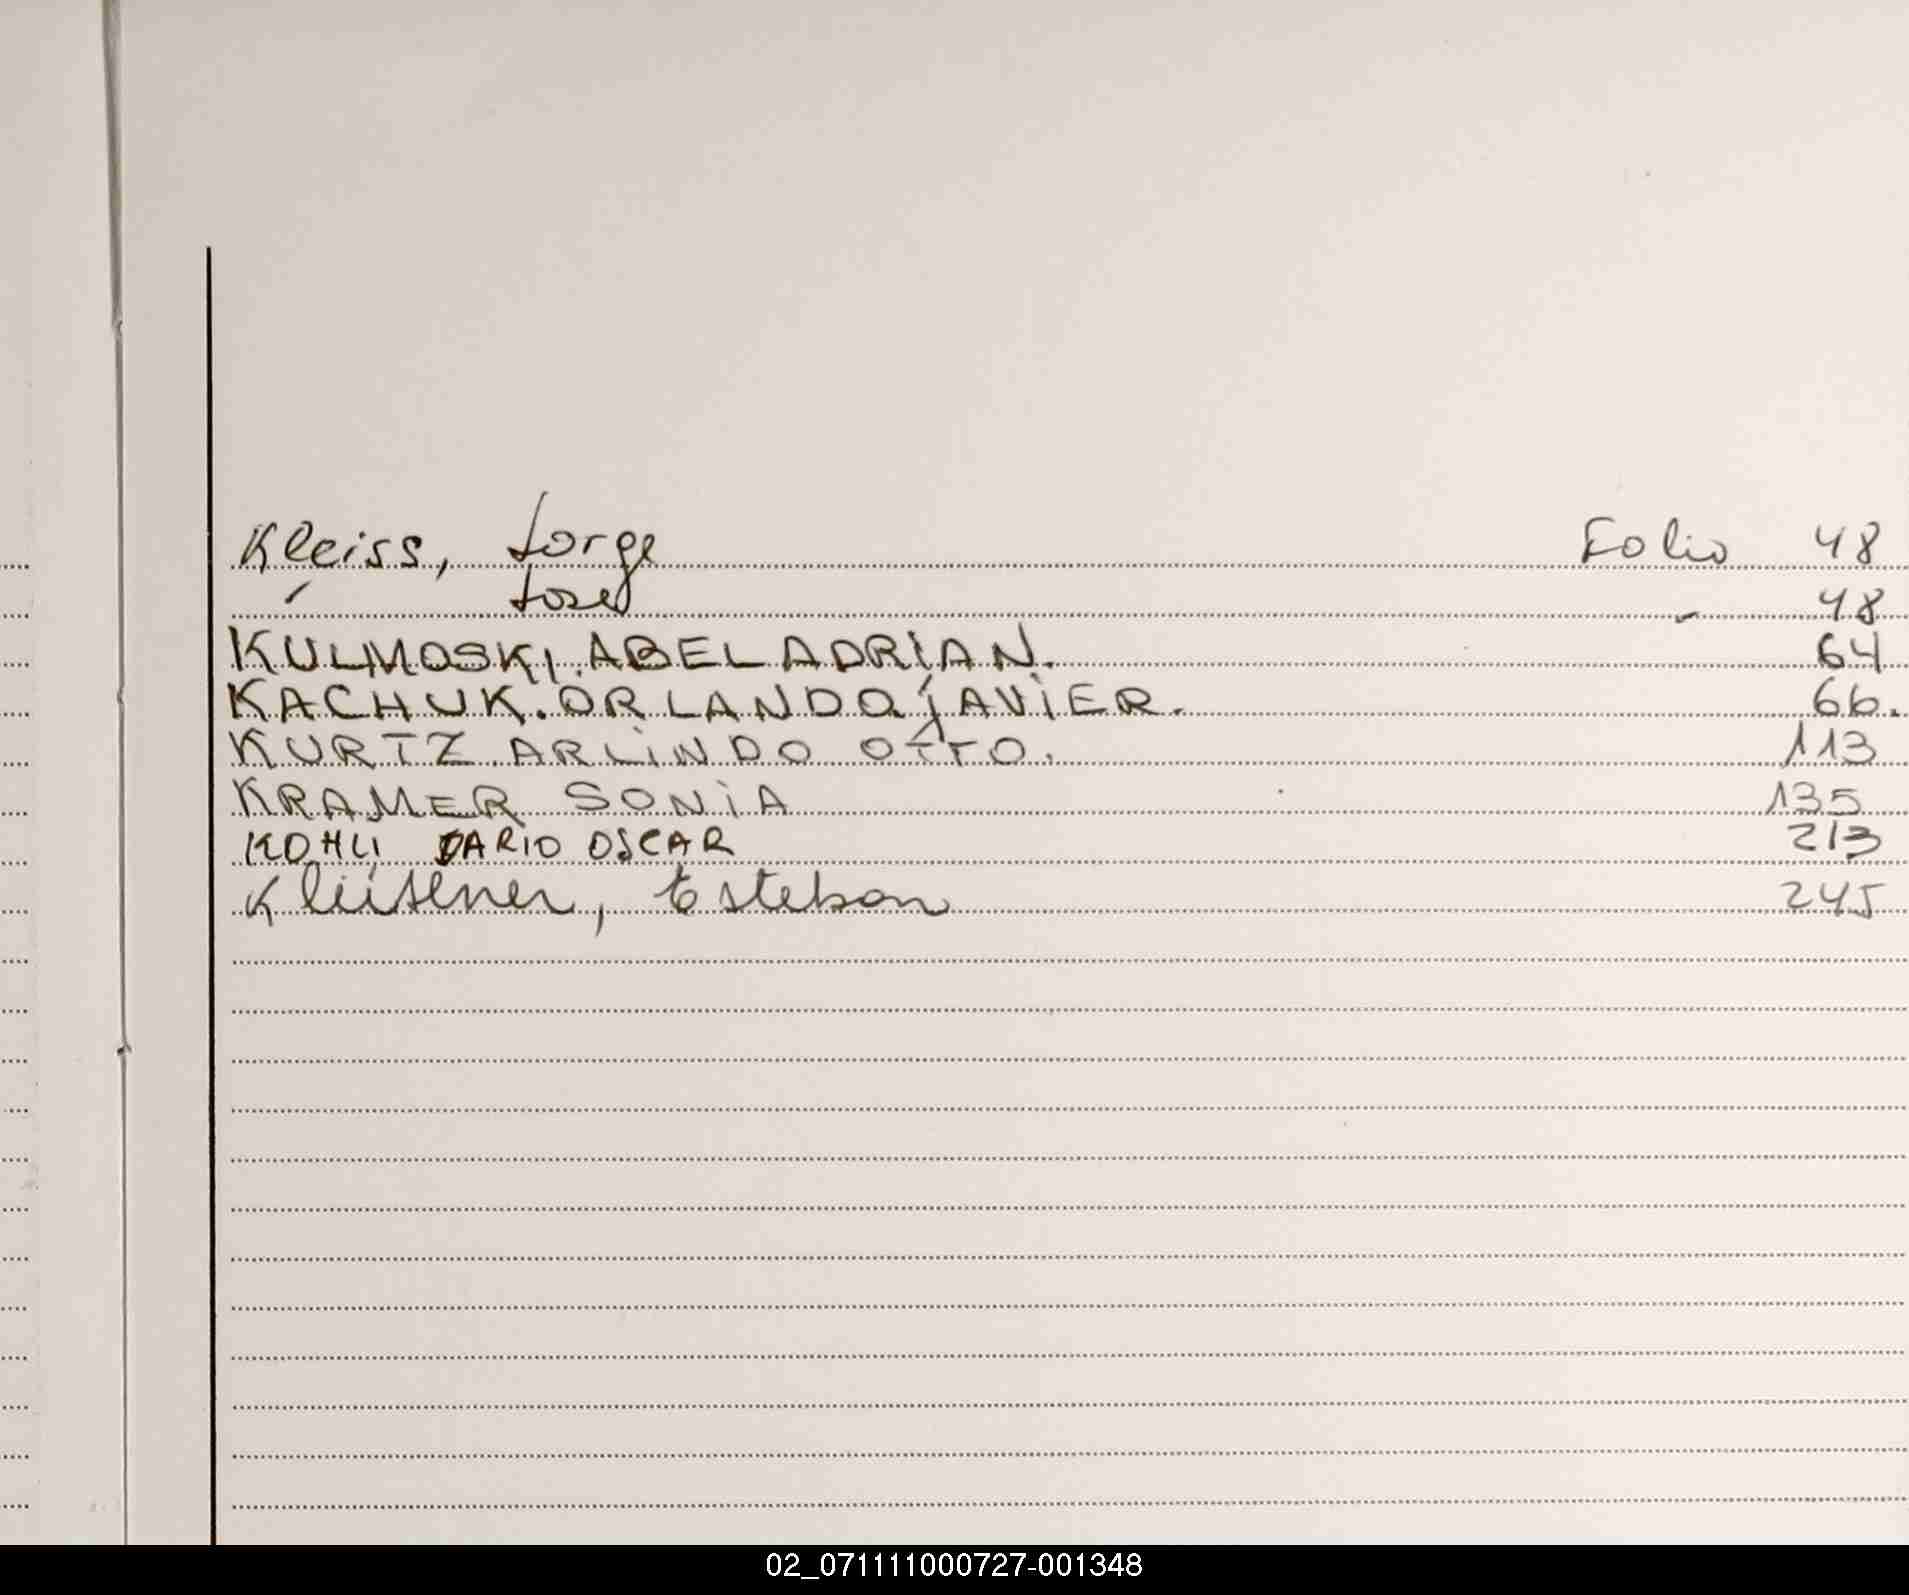 Kleiss, Jorge Folio 48
″ José - 48
KULMOSKI. ABEL ADRIÁN. 64
KACHUK. ORLANDO JAVIER. 66.
KURTZ ARLINDO OTTO. 113
KRAMER SONIA 135
KOHLI DARIO OSCAR 213
Esteban 245
02_071111000727-001348